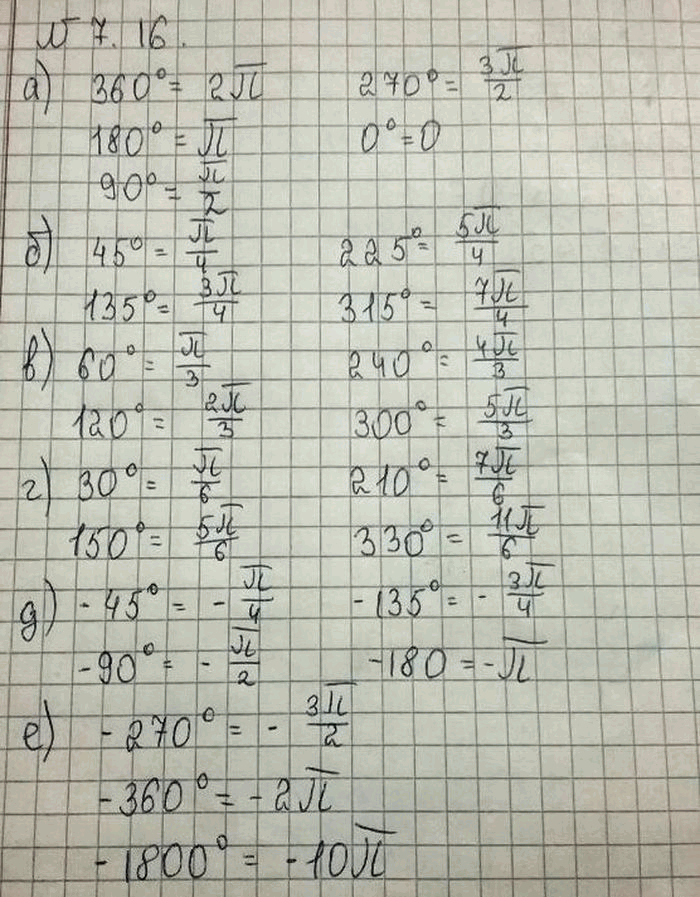 № 7.16.
а) 360° = 2π 270° = 3π/2
180° = π 0° = 0
90° = π/2
б) 45° = π/4 225° = 5π/4
135° = 3π/4 315° = 7π/4
в) 60° = π/3 240° = 4π/3
120° = 2π/3 300° = 5π/3
г) 30° = π/6 210° = 7π/6
150° = 5π/6 330° = 11π/6
д) -45° = -π/4 -135° = -3π/4
-90° = -π/2 -180 = -π
е) -270° = -3π/2
-360° = -2π
-1800° = -10π